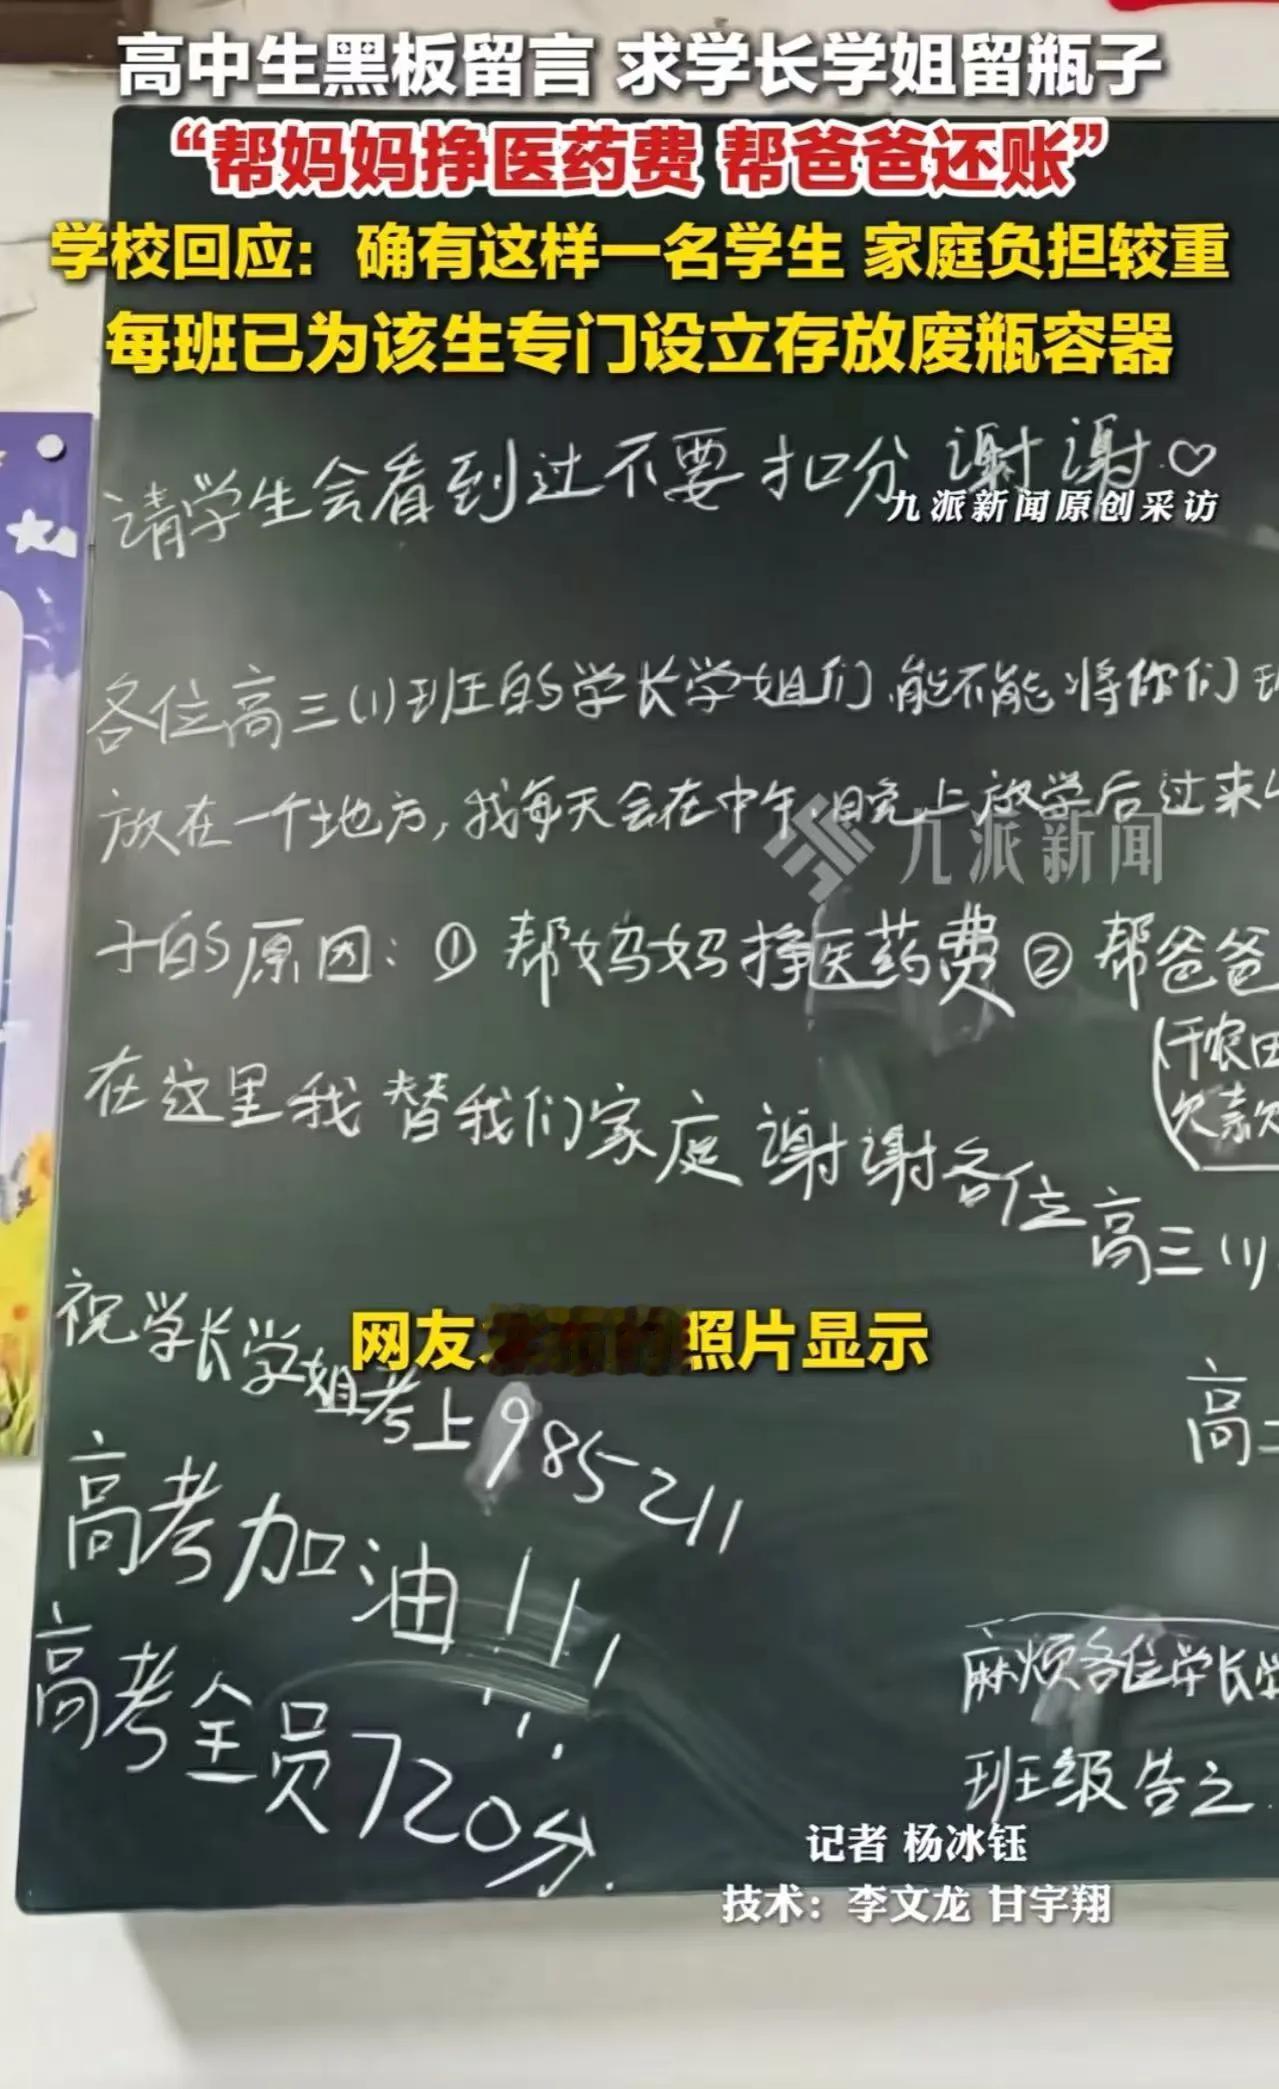 高中生黑板留言 求学长学姐留瓶子
“帮妈妈挣医药费 帮爸爸还账”
学校回应：确有这样一名学生 家庭负担较重
每班已为该生专门设立存放废瓶容器
请学生会看到过不要扣分 谢谢♡
九派新闻原创采访
各位高三(1)班的学长学姐们,能不能将你们
放在一个地方,我每天会在中午,晚上放学后过来
九派新闻
子的原因:① 帮妈妈挣医药费 ② 帮爸爸
(干农田
欠款
在这里我替我们家庭谢谢各位高三(1)
祝学长学姐考上985 211
网友 照片显示
高考加油!!!
高考全员720分.
麻烦各位学长学
班级告之
记者 杨冰钰
技术：李文龙 甘宇翔